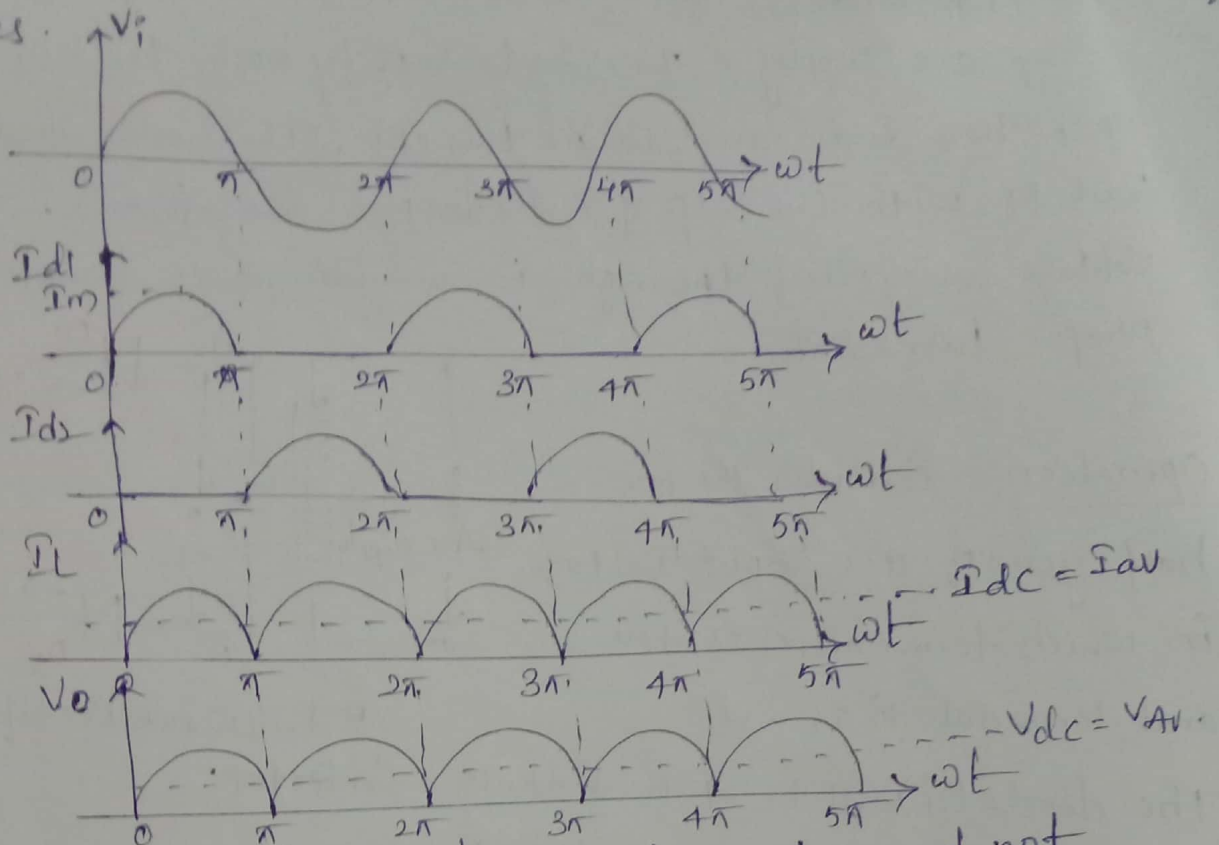 s.
Vi
0 π 2π 3π 4π 5π ωt
Id1
Im
0 π 2π 3π 4π 5π ωt
Id2
0 π 2π 3π 4π 5π ωt
IL
Idc = Iav
ωt
π 2π 3π 4π 5π
Vo
Vdc = VAv.
ωt
0 π 2π 3π 4π 5π
the
not